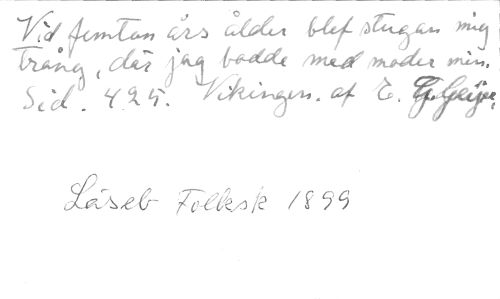 Vid femton års ålder blef stugan mig
trång, där jag bodde med moder min.
Sid. 425. Vikingen. af E. G. Geijer.
Läseb Folksk 1899